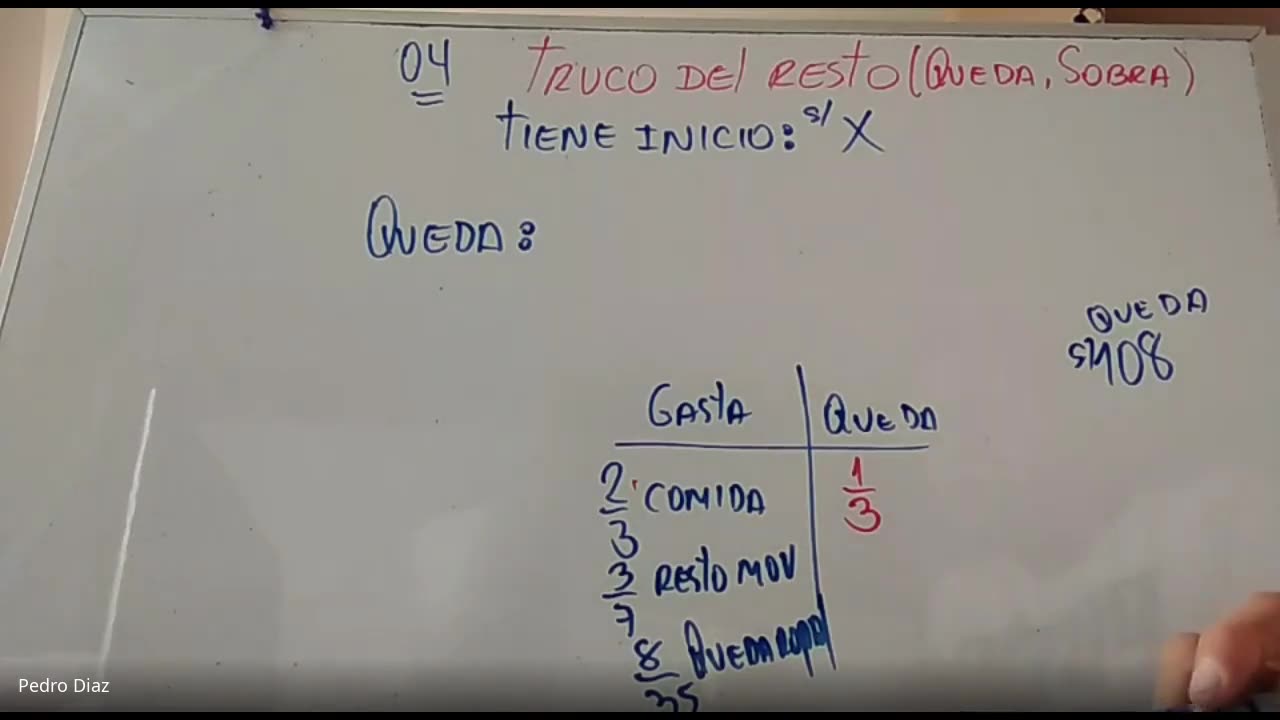 04 TRUCO DEL RESTO (QUEDA, SOBRA)
TIENE INICIO: S/ X
QUEDA:
QUEDA
S/ 108
GASTA QUEDA
2/3 COMIDA 1/3
3/7 RESTO MOV
8/35 QUEDA ROPA
Pedro Diaz